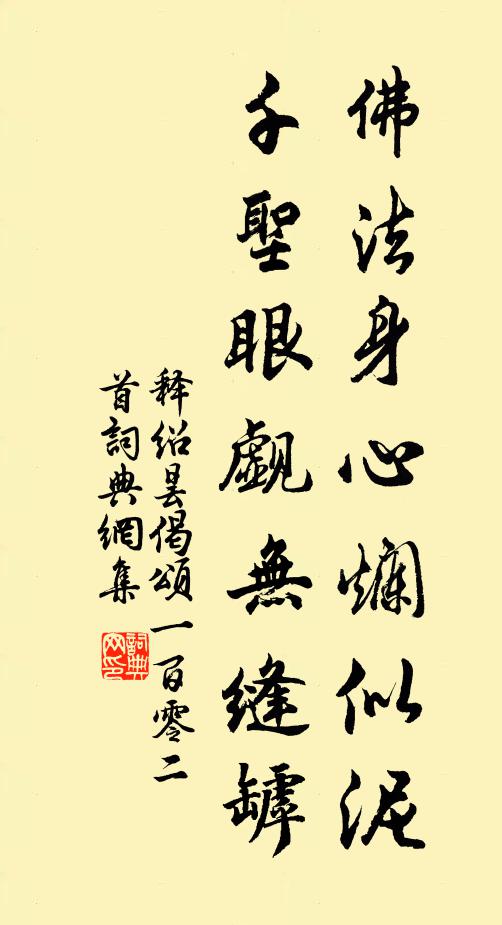 佛法身心爛似泥
千聖眼覷無縫罅
释绍昙偈頌一百零二
首詞典網集
詞典網印